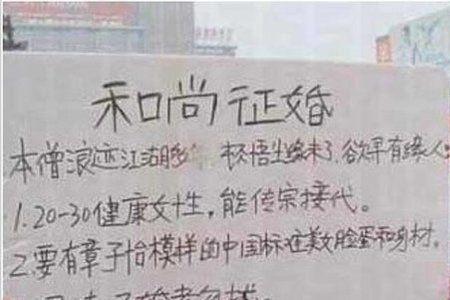 和尚征婚
本僧浪迹江湖 缘未了,欲寻有缘人:
1.20-30健康女性,能传宗接代。
2.要有章子怡模样的中国标准美女脸蛋和身材。